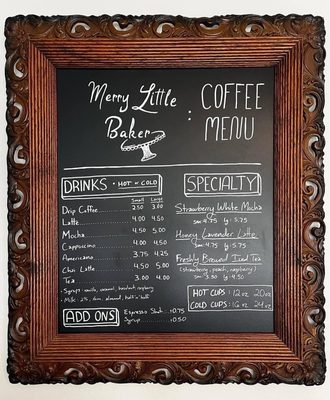 Merry Little
Baker :
COFFEE
MENU
DRINKS • HOT or COLD
Small Large
Drip Coffee 2.50 3.00
Latte 4.00 4.50
Mocha 4.50 5.00
Cappuccino 4.00 4.50
Americano 3.75 4.25
Chai Latte 4.50 5.00
Tea 3.00 4.00
• Syrups: vanilla, caramel, hazelnut, raspberry
• Milk: 2%, almond, half n' half
ADD ONS
Espresso Shot +0.75
Syrup +0.50
SPECIALTY
Strawberry White Mocha
sm 4.75 lg 5.75
Honey Lavender Latte
sm 4.75 lg 5.75
Freshly Brewed Iced Tea
(strawberry, peach, raspberry)
sm 3.50 lg 4.50
HOT CUPS: 12oz 20oz
COLD CUPS: 16oz 24oz